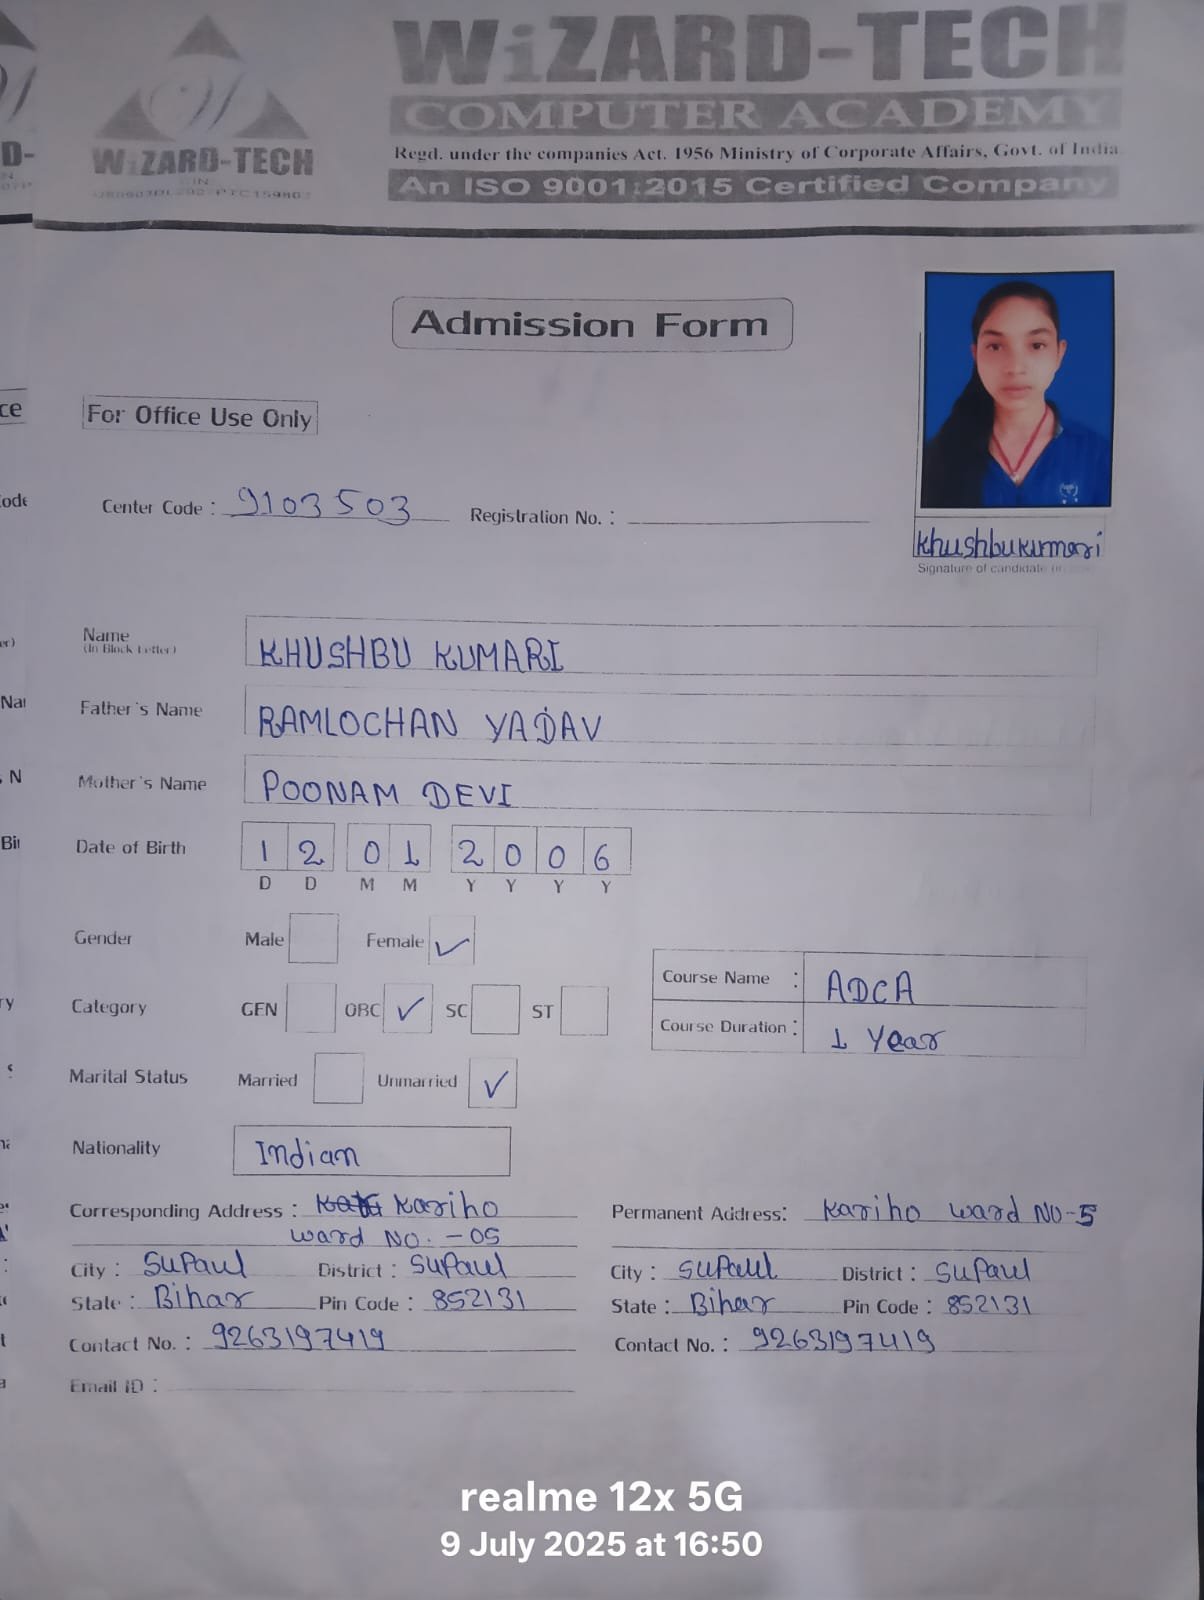 WiZARD-TECH
COMPUTER ACADEMY
Regd. under the companies Act. 1956 Ministry of Corporate Affairs, Govt. of India
An ISO 9001:2015 Certified Company
WiZARD-TECH
Admission Form
For Office Use Only
Center Code : 9103503 Registration No. :
Khushbu kumari
Signature of candidate
Name KHUSHBU KUMARI
(In Block Letter)
Father's Name RAMLOCHAN YADAV
Mother's Name POONAM DEVI
Date of Birth 12 01 2006
D D M M Y Y Y Y
Gender Male Female ✓
Category GEN OBC ✓ SC ST
Course Name : ADCA
Course Duration : 1 Year
Marital Status Married Unmarried ✓
Nationality Indian
Corresponding Address : Kariho
ward NO. - 05
City : Supaul District : Supaul
State : Bihar Pin Code : 852131
Contact No. : 9263197419
Email ID :
Permanent Address: Kariho ward NO-5
City : Supaul District : Supaul
State : Bihar Pin Code : 852131
Contact No. : 9263197419
realme 12x 5G
9 July 2025 at 16:50